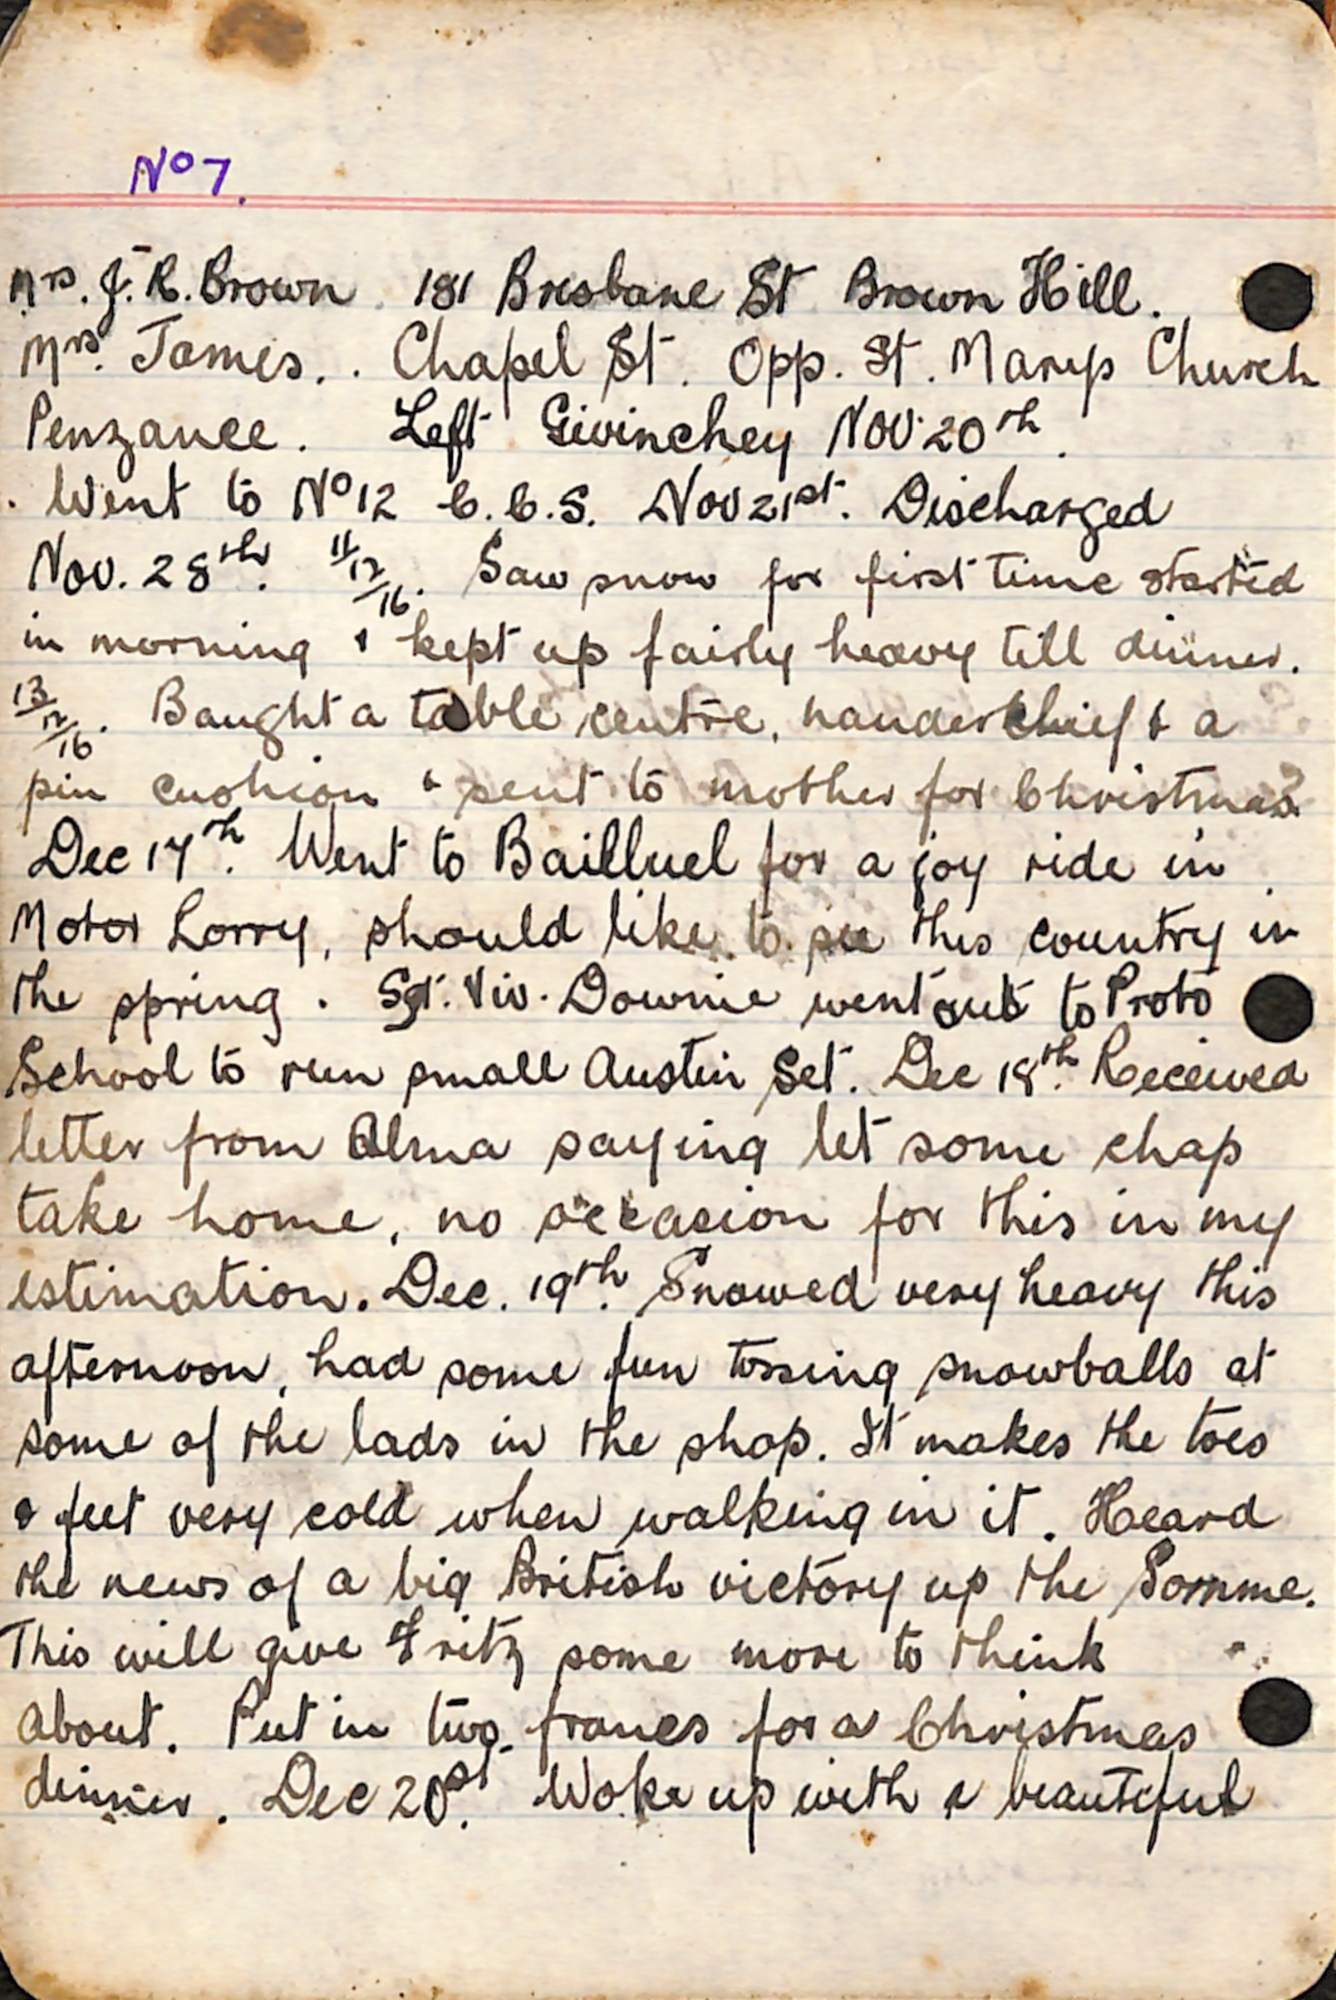 No 7.
Mrs. J. R. Brown 181 Brisbane St Brown Hill.
Mrs. James. . Chapel St. Opp. St. Marys Church
Penzance. Left Givinchey Nov. 20th.
. Went to No 12 C.C.S. Nov 21st. Discharged
Nov. 28th. 11/12/16. Saw snow for first time started
in morning & kept up fairly heavy till dinner.
13/12/16. Baught a table centre, handerkhief & a
pin cushion & sent to mother for Christmas.
Dec 17th. Went to Bailluel for a joy ride in
Motor Lorry, should like to see this country in
the spring. Sgt. Viv. Downie went out to Proto
School to run small Austin Set. Dec 18th. Received
letter from Alma saying let some chap
take home, no occasion for this in my
estimation. Dec. 19th. Snowed very heavy this
afternoon, had some fun tossing snowballs at
some of the lads in the shop. It makes the toes
& feet very cold when walking in it. Heard
the news of a big British victory up the Somme.
This will give Fritz some more to think
about. Put in two francs for a Christmas
dinner. Dec 20st. Woke up with a beautiful